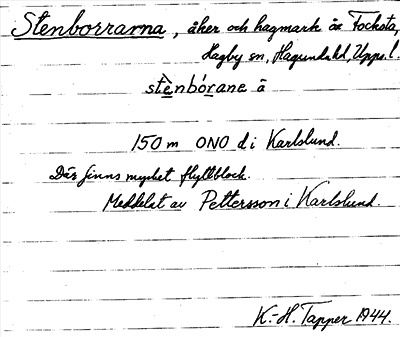 Stenborrarna, åker och hagmark öv Focksta,
Hagby sn, Hagunda hd, Upps. l.
stènbórane ä
150 m ONO d i Karlslund.
Där finns mycket flyttblock.
Meddelat av Pettersson i Karlslund.
K.-H. Tapper 1944.